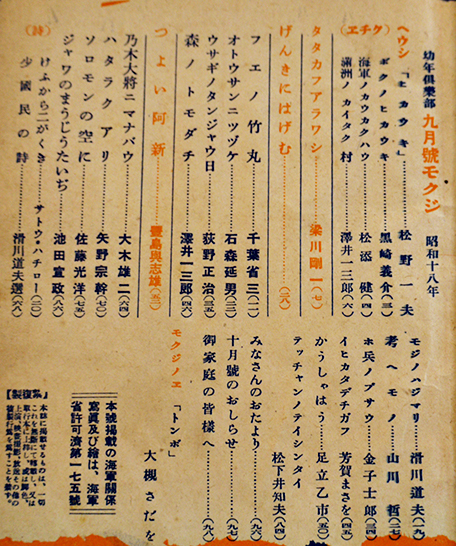 幼年倶樂部 九月號モクジ 昭和十八年
ヘウシ「ヒカウキ」……松野一夫
(クチヱ)
ボクノヒカウキ……黑崎義介(三)
海軍ノカウカクハウ……松添健(四)
滿洲ノカイタク村……澤井一三郎(六)
タタカフアラワシ……梁川剛一(七)
げんきにはげむ……(二八)
フエノ竹丸……千葉省三(一二)
オトウサンニツヅケ……石森延男(三二)
ウサギノタンジャウ日……荻野正治(三五)
森ノトモダチ……澤井一三郎(四六)
つよい阿新……豐島與志雄(五二)
乃木大將ニマナバウ……大木雄二(六四)
ハタラクアリ……矢野宗幹(七〇)
ソロモンの空に……佐藤光洋(七五)
ジャワのまうじうたいぢ……池田宣政(八六)
(詩)
けふから二がくき……サトウ・ハチロー(二〇)
少國民の詩……滑川道夫選(八八)
モジノハジマリ……滑川道夫(一九)
考ヘモノ……山川哲(二七)
ホ兵ノブサウ……金子士郎(三四)
イヒカタデチガフ……芳賀まさを(四五)
かうしゃはう……足立乙市(五〇)
テッチャンノテイシンタイ
……松下井知夫(八四)
みなさんのおたより……(九六)
十月號のおしらせ……(九七)
御家庭の皆樣へ……(九八)
モクジノヱ「トンボ」
大槻さだを
本號掲載の海軍關係
寫眞及び繪は、海軍
省許可濟第一七五號
【禁複製】
本誌に掲載するものは、一切
これを無斷にて轉載し、又は
單行本に上梓し、或は脚色、
上演、映畫撮影、放送その他の
複製行爲を爲すことを嚴禁す。